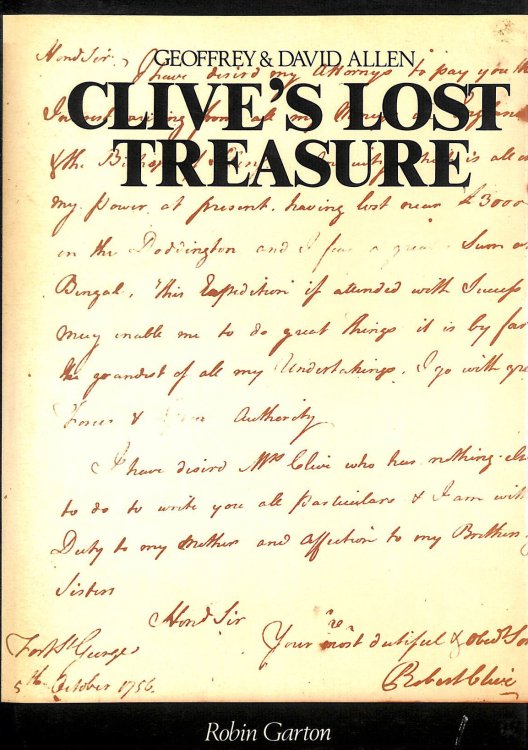 GEOFFREY & DAVID ALLEN
CLIVE'S LOST
TREASURE
Hond Sir.
I have desird my Attorneys to pay you the
Interest arising from all my Money in England
& the Bishop of is all
my Power at present, having lost near £3000
in the Doddington and I fear a great Sum
Bengal, this Expedition if attended with Success
may enable me to do great things it is by far
the grandest of all my Undertakings, I go with
Forces & Authority
I have desird Mrs Clive who has nothing
to do to write you all particulars & I am
Duty to my Mother and Affection to my Brothers
Sisters
Hond Sir
Your most dutiful & obedt
Fort St George
5th October 1756.
Robert Clive
Robin Garton